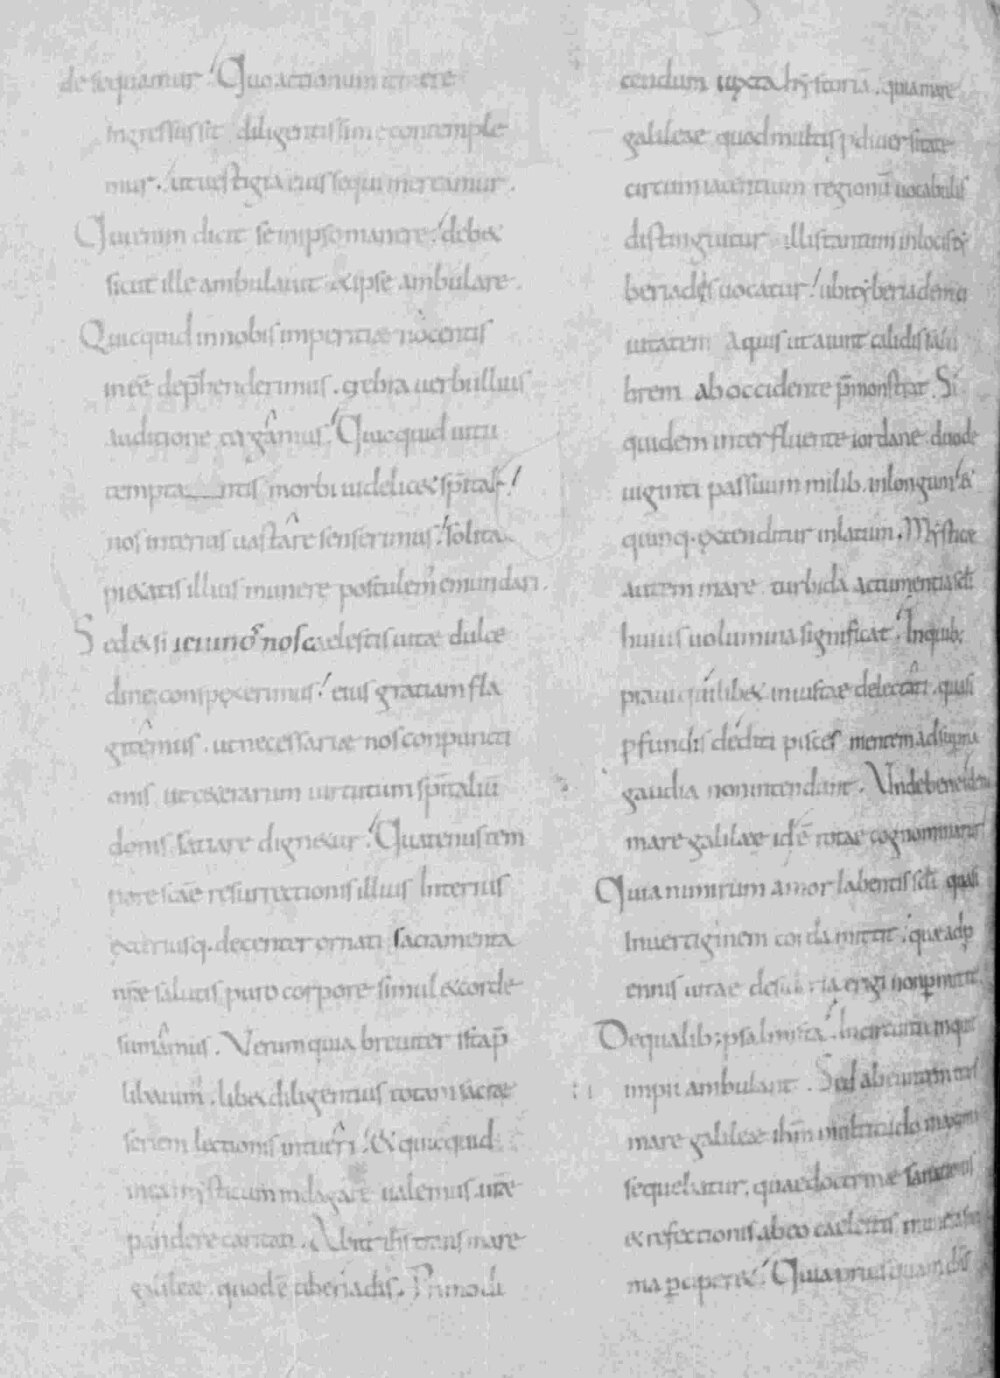 desequamur. Quo actionum itinere
ingressus sit diligentissime contemple
mur. ut uestigia eius sequi mereamur.
Qui enim dicit se in ipso manere. debet
sicut ille ambulauit & ipse ambulare.
Quicquid in nobis imperitiae nocentis
inee dephenderimus. crebra uerbi illius
auditione tergamus. Quicquid uitii
temptantis morbi uidelic& spitalis.
nos interius uastare senserimus. solita
pi&atis illius munere postulem emundari.
Sed & si iciuno nos caelestis uitae dulce
dine conspexerimus. eius gratiam fla
gitemus. ut necessariae nos conpuncti
onis ut c&erarum uirtutum spitaliu
donis satiare dign&ur. Quatenus tem
pore scae resurrectionis illius Interius
exteriusq. decenter ornati sacramenta
nrae salutis puro corpore simul & corde
sumamus. Verum quia breuiter ista p
libauim. lib& diligentius totam sacrae
seriem lectionis intueri. & quicquid
inea mysticum indagare ualemus. urae
pandere caritati. Abiit ihs trans mare
galileae. quod e tiberiadis. Primo di
cendum iuxta hystoria. quia mare
galileae quod multis p diuersitate
circumiacentium regionu uocabulis
distinguitur illis tantum in locis ty
beriadis uocatur. ubi tyberiadem ci
uitatem Aquis ut aiunt calidis salu
brem ab occidente pmonstrat. Si
quidem interfluente iordane duode
uiginti passuum milib. in longum &
quinq. extenditur in latum. Mystice
autem mare turbida ac tumentia scli
huius uolumina significat. In quib;
praui quilib& iniustae delectati. quasi
pfundis dediti pisces mentem ad superna
gaudia non intendunt. Unde bene idem
mare galileae id e rotae cognominatur
Quia nimirum amor labentis scli quasi
In uertiginem corda mittit. quae ad p
ennis uitae desideria erigi non pmittit.
De qualib; psalmista. In circuitu inquit
impii ambulant. Sed abeuntem trans
mare galileae ihm multitudo magna
sequebatur. quae doctrinae sanationis
& refectionis ab eo caelestis
ma pciper&. Quia prius quam dns